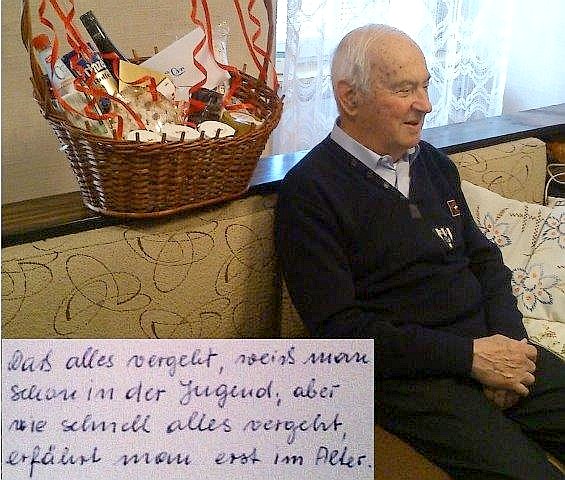 Daß alles vergeht, weiß man
schon in der Jugend, aber
wie schnell alles vergeht,
erfährt man erst im Alter.